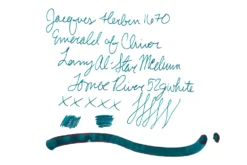 Jacques Herbin 1670
Emerald of Chivor
Lamy Al-Star Medium
Tomoe River 52g white
X X X X X